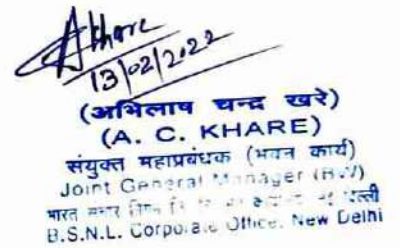 Akhare
13/02/2022
(अभिलाष चन्द्र खरे)
(A. C. KHARE)
संयुक्त महाप्रबंधक (भवन कार्य)
Joint General Manager (BW)
भारत संचार निगम
B.S.N.L. Corporate Office, New Delhi